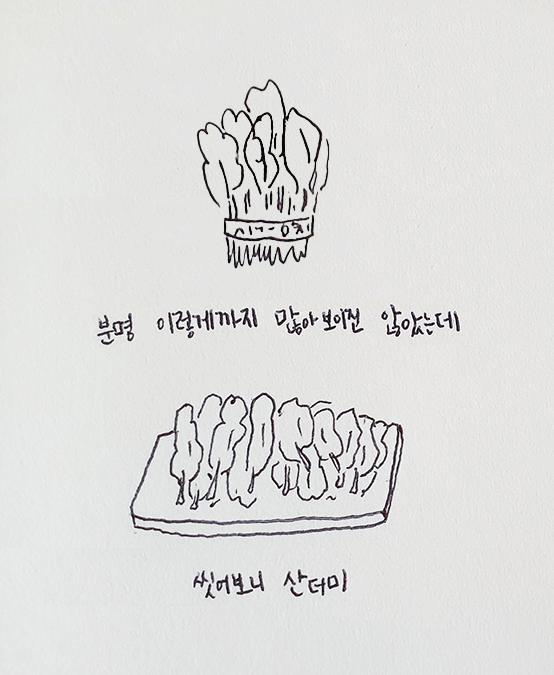 분명 이렇게까지 많아 보이진 않았는데
씻어보니 산더미